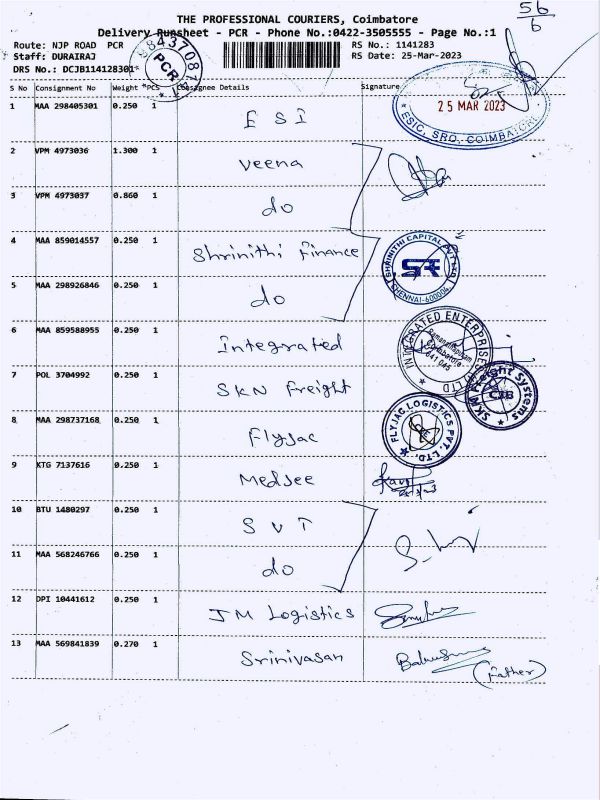 56
6
THE PROFESSIONAL COURIERS, Coimbatore
Delivery Runsheet - PCR - Phone No.:0422-3505555 - Page No.:1
Route: NJP ROAD PCR
RS No.: 1141283
Staff: DURAIRAJ
RS Date: 25-Mar-2023
DRS No.: DCJB114128301
PCR
S No Consignment No Weight PCS Consignee Details Signature
1 MAA 298405301 0.250 1 ESI
25 MAR 2023
ESIC, SRO, COIMBATORE
2 VPM 4973036 1.300 1 Veena
3 VPM 4973037 0.860 1 do
4 MAA 859014557 0.250 1 Shrinithi Finance
SHRINITHI CAPITAL PVT LTD
CHENNAI-600006
5 MAA 298926846 0.250 1 do
6 MAA 859588955 0.250 1 Integrated
INTEGRATED ENTERPRISES
Ramanathapuram
Coimbatore
641 045
7 POL 3704992 0.250 1 SKN Freight
SKN Freight Systems
CJB
8 MAA 298737168 0.250 1 Flyjac
FLYJAC LOGISTICS PVT. LTD.
9 KTG 7137616 0.250 1 Medsee
10 BTU 1480297 0.250 1 SVT
11 MAA 568246766 0.250 1 do
12 DPI 10441612 0.250 1 JM Logistics
13 MAA 569841839 0.270 1 Srinivasan
(Father)